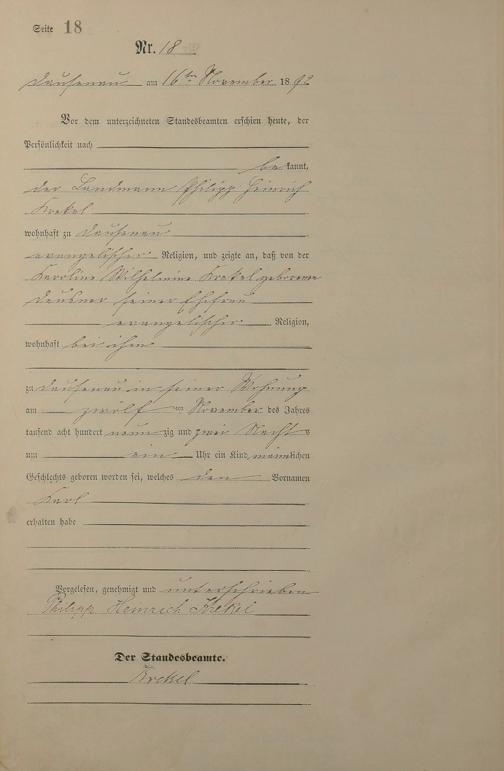 Seite 18
Nr. 18
Dausenau am 16ten November 1892
Vor dem unterzeichneten Standesbeamten erschien heute, der
Persönlichkeit nach
bekannt,
der Landmann Philipp Heinrich
Krekel
wohnhaft zu Dausenau
evangelischer Religion, und zeigte an, daß von der
Karoline Wilhelmine Krekel geborene
Deusner seiner Ehefrau
evangelischer Religion,
wohnhaft bei ihm
zu Dausenau in seiner Wohnung
am zwölf ten November des Jahres
tausend acht hundert neunzig und zwei Nachts
um ein Uhr ein Kind männlichen
Geschlechts geboren worden sei, welches den Vornamen
Karl
erhalten habe
Vorgelesen, genehmigt und unterschrieben
Philipp Heinrich Krekel
Der Standesbeamte.
Krekel